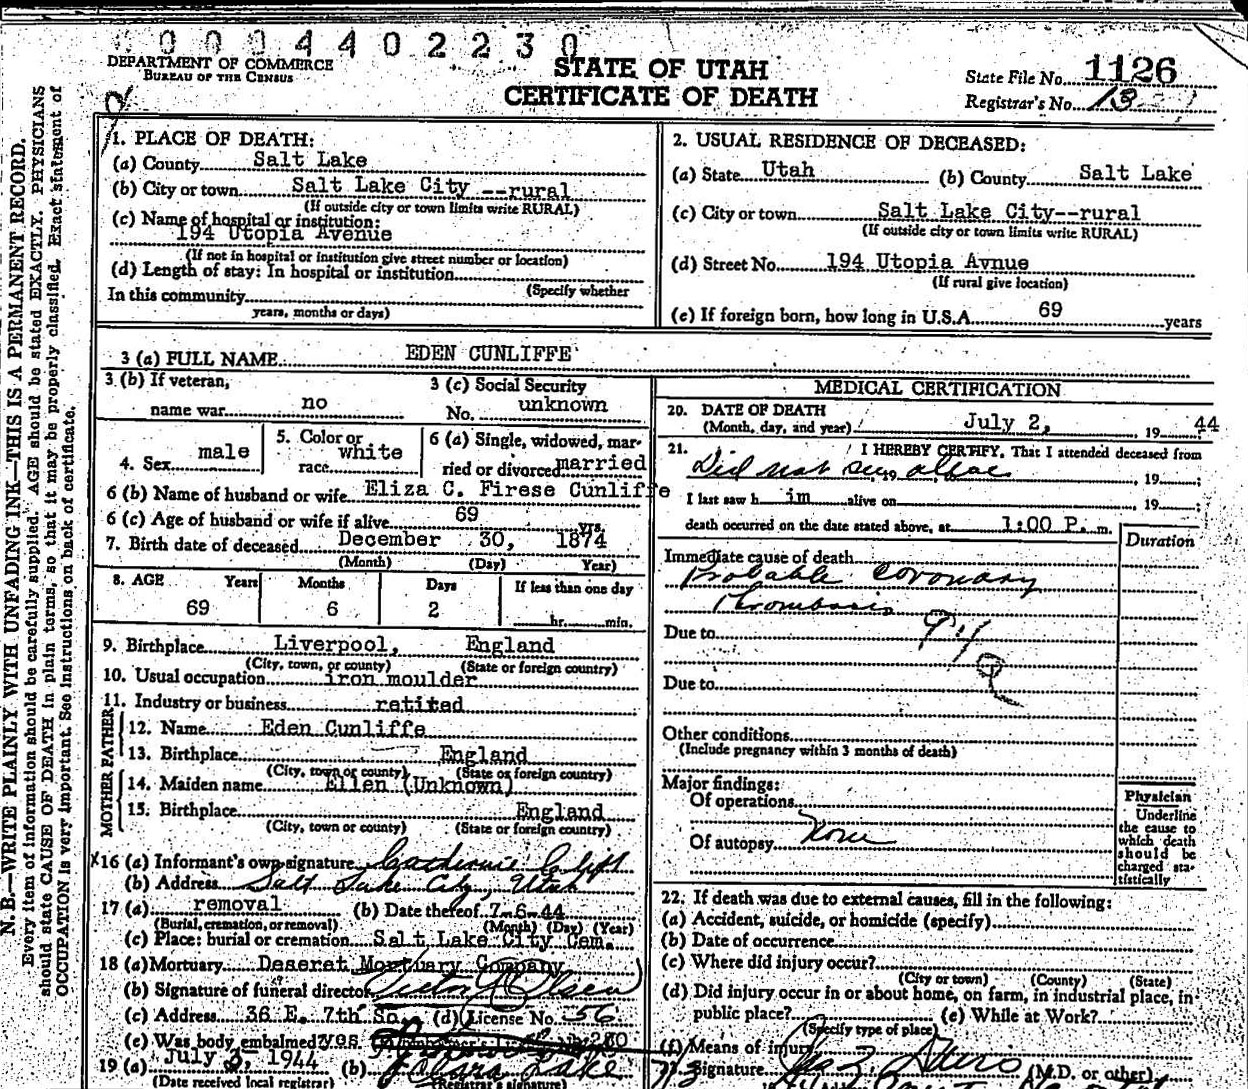 0 0 0 4 4 0 2 2 3 0
DEPARTMENT OF COMMERCE
BUREAU OF THE CENSUS
STATE OF UTAH
CERTIFICATE OF DEATH
State File No. 1126
Registrar's No. 13
N. B.—WRITE PLAINLY WITH UNFADING INK—THIS IS A PERMANENT RECORD.
Every item of information should be carefully supplied. AGE should be stated EXACTLY. PHYSICIANS
should state CAUSE OF DEATH in plain terms, so that it may be properly classified. Exact statement of
OCCUPATION is very important. See instructions on back of certificate.
1. PLACE OF DEATH:
(a) County Salt Lake
(b) City or town Salt Lake City --rural
(If outside city or town limits write RURAL)
(c) Name of hospital or institution:
194 Utopia Avenue
(If not in hospital or institution give street number or location)
(d) Length of stay: In hospital or institution
(Specify whether
In this community
years, months or days)
2. USUAL RESIDENCE OF DECEASED:
(a) State Utah (b) County Salt Lake
(c) City or town Salt Lake City--rural
(If outside city or town limits write RURAL)
(d) Street No. 194 Utopia Avnue
(If rural give location)
(e) If foreign born, how long in U.S.A. 69 years
3 (a) FULL NAME EDEN CUNLIFFE
3 (b) If veteran,
name war no
3 (c) Social Security
No. unknown
4. Sex male
5. Color or
race white
6 (a) Single, widowed, mar-
ried or divorced married
6 (b) Name of husband or wife Eliza C. Firese Cunliffe
6 (c) Age of husband or wife if alive 69 yrs.
7. Birth date of deceased December 30, 1874
(Month) (Day) Year)
8. AGE Years Months Days If less than one day
69 6 2 hr. min.
9. Birthplace Liverpool, England
(City, town, or county) (State or foreign country)
10. Usual occupation iron moulder
11. Industry or business retited
FATHER
12. Name Eden Cunliffe
13. Birthplace England
(City, town or county) (State or foreign country)
MOTHER
14. Maiden name Ellen (Unknown)
15. Birthplace England
(City, town or county) (State or foreign country)
X16 (a) Informant's own signature Catherine
(b) Address Salt Lake City, Utah
17 (a) removal (b) Date thereof 7-6-44
(Burial, cremation, or removal) (Month) (Day) (Year)
(c) Place: burial or cremation Salt Lake City Cem.
18 (a) Mortuary Deseret Mortuary Company
(b) Signature of funeral director Victor Olsen
(c) Address 36 E. 7th So. (d) License No. 56
(e) Was body embalmed? yes
19 (a) July 3, 1944 (b) Lake
(Date received local registrar) (Registrar's signature)
MEDICAL CERTIFICATION
20. DATE OF DEATH
(Month, day, and year) July 2, 19 44
21. I HEREBY CERTIFY, That I attended deceased from
Did not see alive, 19 , 19 ;
I last saw h im alive on 19 ;
death occurred on the date stated above, at 1:00 P. m.
Duration
Immediate cause of death
Probable Coronary
Thrombosis
Due to
Due to
Other conditions
(Include pregnancy within 3 months of death)
Major findings:
Of operations
Of autopsy None
Physician
Underline
the cause to
which death
should be
charged sta-
tistically
22. If death was due to external causes, fill in the following:
(a) Accident, suicide, or homicide (specify)
(b) Date of occurrence
(c) Where did injury occur?
(City or town) (County) (State)
(d) Did injury occur in or about home, on farm, in industrial place, in
public place? (e) While at Work?
(Specify type of place)
(f) Means of injury
Signature (M.D. or other)